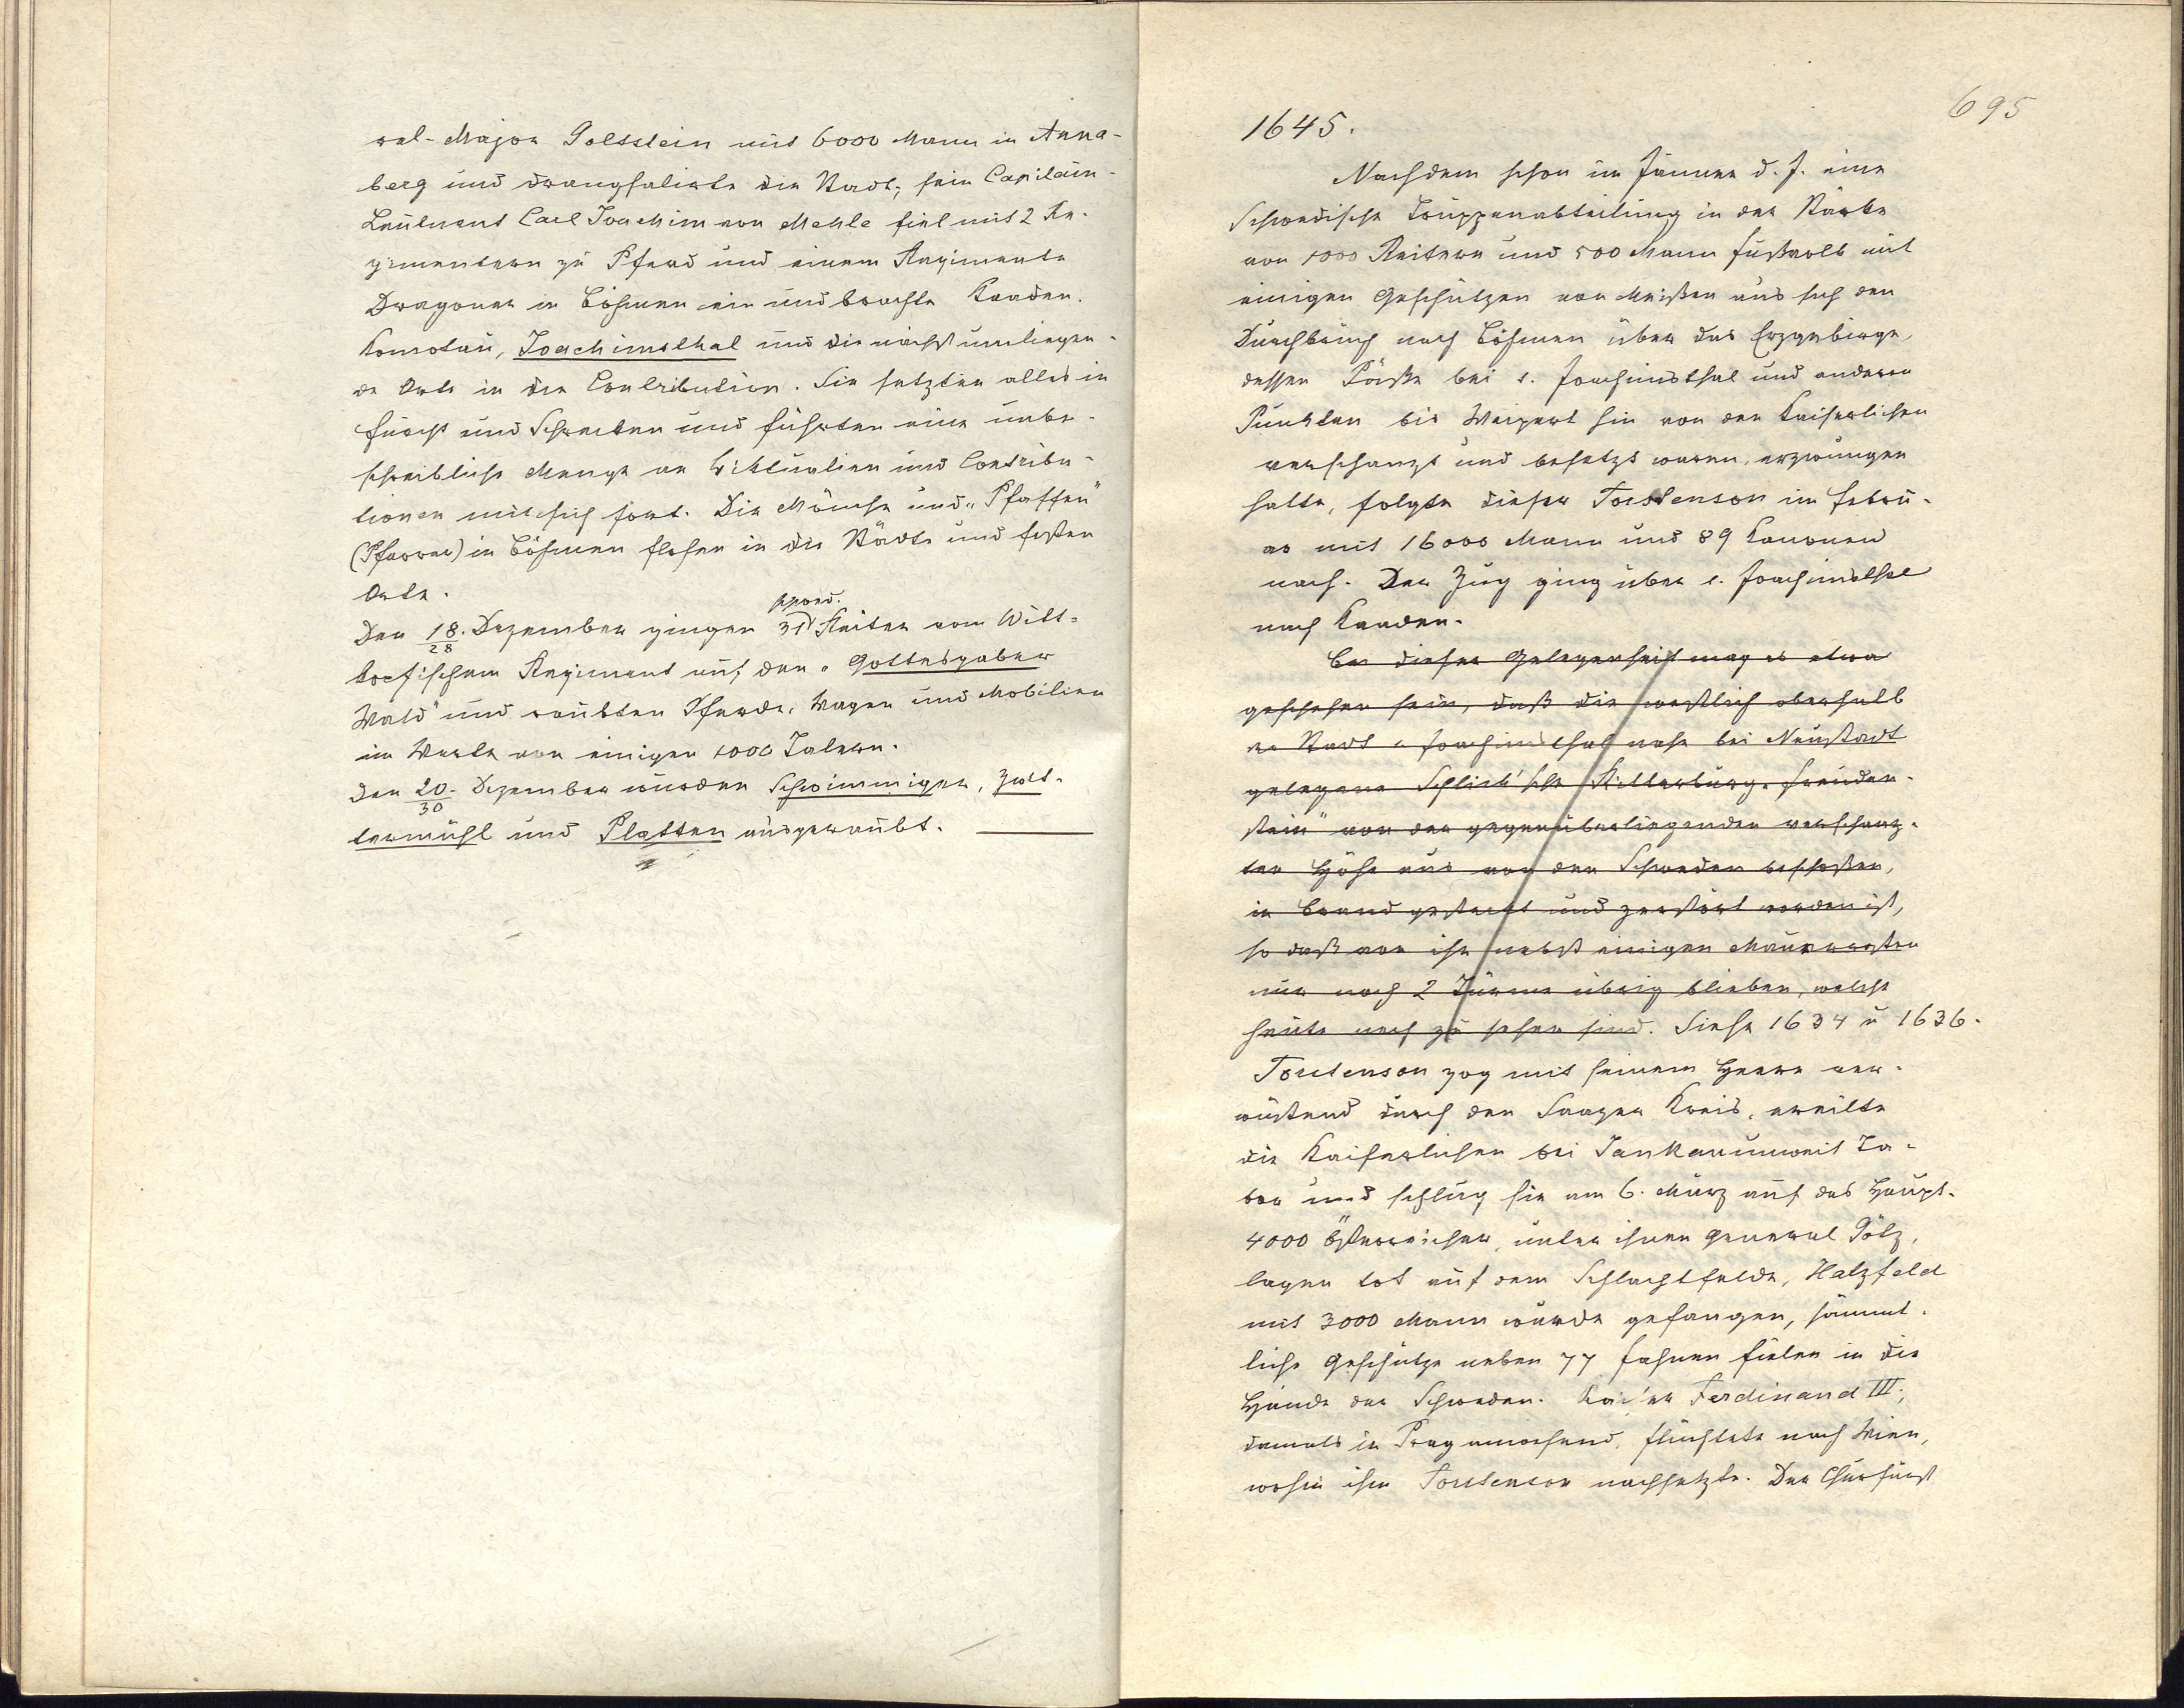 ral-Major Goltstein mit 6000 Mann in Anna-
berg und drangsalierte die Stadt; sein Capitain-
Leutnant Carl Joachim von Mehle fiel mit 2 Re-
gimentern zu Pferd und einem Regimente
Dragoner in Böhmen ein und brachte Kaaden,
Komotau, Joachimsthal und die nächst umliegen-
de Orte in die Contribution. Sie setzten alles in
Furcht und Schrecken und führten eine unbe-
schreibliche Menge an Viktualien und Contribu-
tionen mit sich fort. Die Mönche und „Pfaffen"
(Pfarrer) in Böhmen flohen in die Städte und festen
Orte.
schwed.
Den 18./28 Dezember gingen 31 Reiter vom Witt-
kopfischem Regiment auf den „Gottesgaber
Wald" und raubten Pferde, Wagen und Mobilien
im Werte von einigen 1000 Talern.
Den 20./30 Dezember wurden Schwimmiger, Zwit-
termühl und Platten ausgeraubt.
695
1645.
Nachdem schon im Jänner d. J. eine
Schwedische Truppenabteilung in der Stärke
von 1000 Reitern und 500 Mann Fußvolk mit
einigen Geschützen von Meißen aus sich den
Durchbruch nach Böhmen über das Erzgebirge,
dessen Päße bei s. Joachimsthal und anderen
Punkten bis Weipert hin von den Kaiserlichen
verschanzt und besetzt waren, erzwungen
hatte, folgte dieser Torstenson im Febru-
ar mit 16000 Mann und 89 Kanonen
nach. Der Zug ging über s. Joachimsthal
nach Kaaden.
Bei dieser Gelegenheit mag es etwa
geschehen sein, daß die westlich oberhalb
der Stadt s. Joachimsthal nahe bei Neustadt
gelegene Schlick'sche Ritterburg „Freuden-
stein" von der gegenüberliegenden verschanz-
ten Höhe aus von den Schweden beschoßen,
in Brand gesteckt und zerstört worden ist,
so daß von ihr nebst einigen Mauerresten
nur noch 2 Türme übrig blieben, welche
heute noch zu sehen sind. Siehe 1634 u 1636.
Torstenson zog mit seinem Heere ver-
wüstend durch den Saazer Kreis, ereilte
die Kaiserlichen bei Jankau unweit Ta-
bor und schlug sie am 6. März auf das Haupt.
4000 Österreicher, unter ihnen General Götz,
lagen tot auf dem Schlachtfelde, Hatzfeld
mit 3000 Mann wurde gefangen, sämmt-
liche Geschütze neben 77 Fahnen fielen in die
Hände der Schweden. Kaiser Ferdinand III.,
damals in Prag anwesend, flüchtete nach Wien,
wohin ihm Torstenson nachsetzte. Der Churfürst